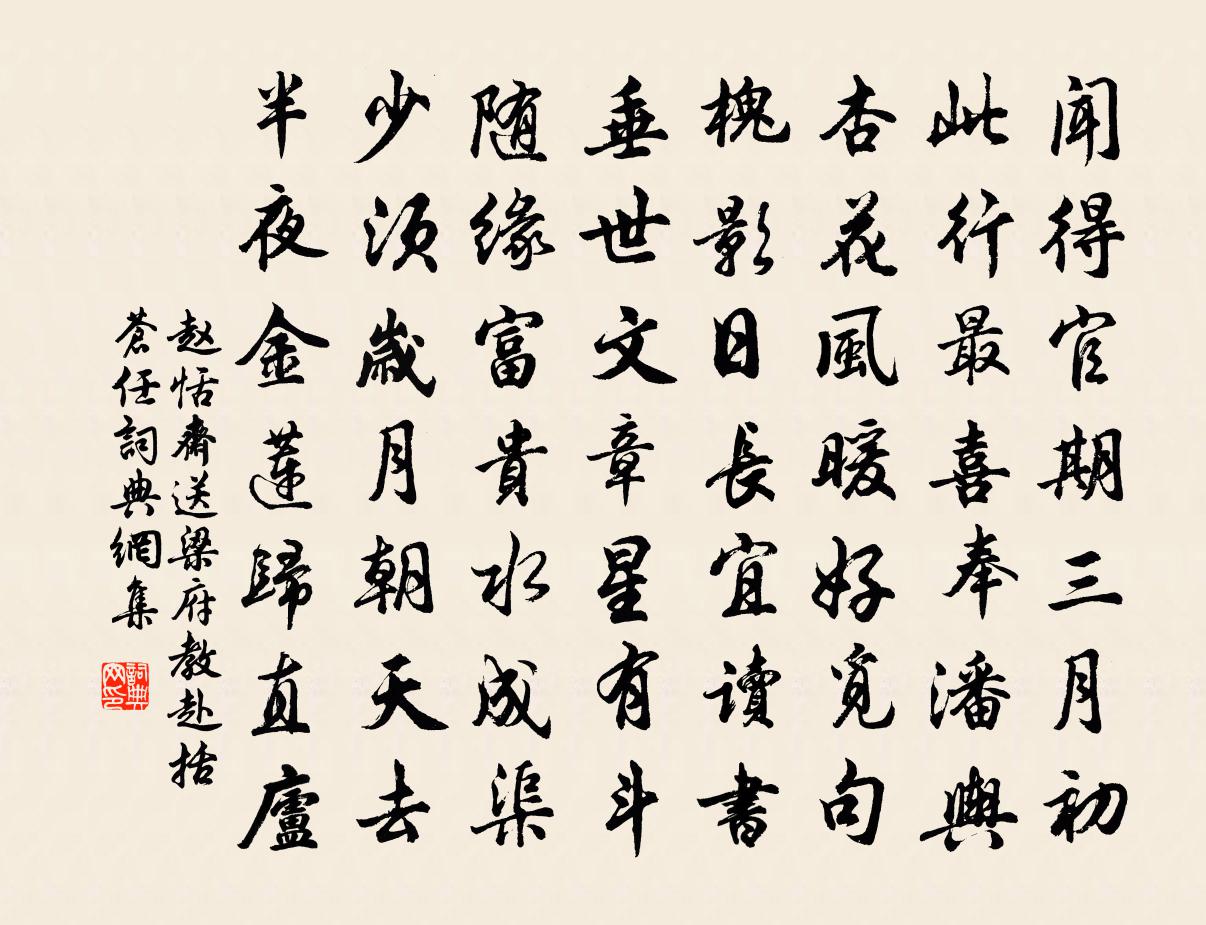 闻得官期三月初
此行最喜奉潘輿
杏花風暖好覓句
槐影日長宜讀書
垂世文章星有斗
随缘富貴水成渠
少須歲月朝天去
半夜金蓮歸直廬
赵恬齋送梁府教赴括
蒼任詞典網集
詞典网印